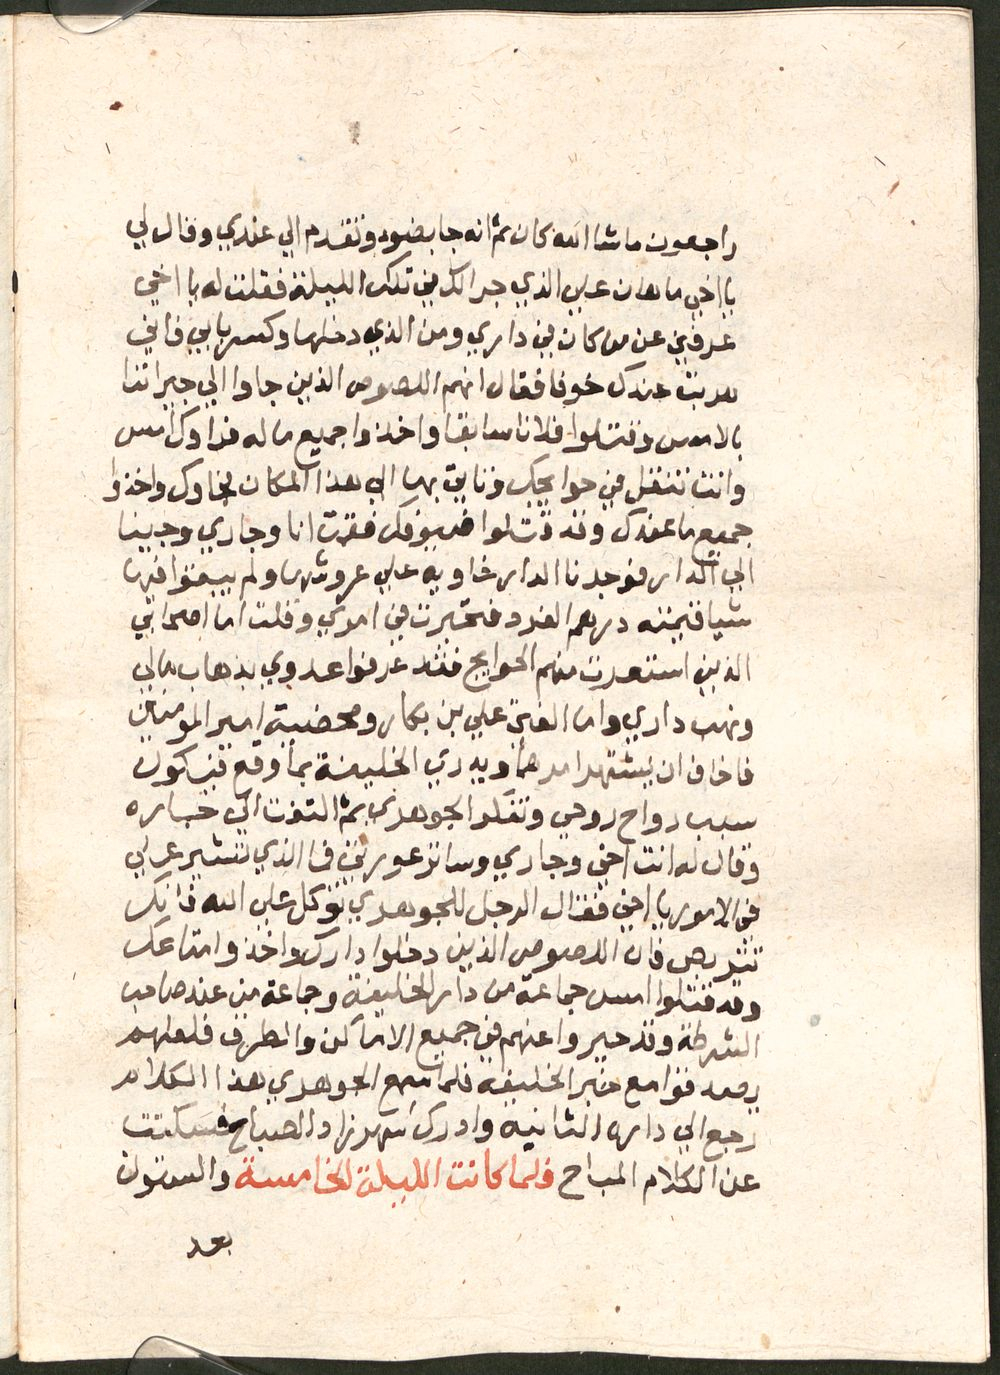 راجعون ماشا الله كان ثم انه جا بضوء وتقدم الي عندي وقال لي
يا اخي ما هان علي الذي جرالك في تلك الليلة فقلت له يا اخي
عرفني عن من كان في داري ومن الذي دخلها وكسر بابي فاني
هربت عندك خوفا فقال انهم اللصوص الذين جاوا الي جيراننا
بالامس وقتلوا فلانا سابقا واخذوا جميع ماله فراوك امس
وانت تنقل في حوايجك وتاتي بها الي هذا المكان فجاوك واخذوا
جميع ما عندك وقد قتلوا ضيوفك فقمت انا وجاري وجينا
الي الدار فوجدنا الدار خاويه علي عروشها ولم يبقوا فيها
شيا قيمته درهم الفرد فتحيرت في امري وقلت اما اصحابي
الذين استعرت منهم الحوايج فقد عرفوا عذري بذهاب مالي
ونهب داري واما الفتي علي بن بكار ومحضية امير المومنين
فاخاف ان يشتهر امرهما ويدري الخليفة بما وقع فيكون
سبب رواح روحي وتفكر الجوهري ثم التفت الي جاره
وقال له انت اخي وجاري وساتر عورتي فما الذي تشير علي
في الامور يا اخي فقال الرجل للجوهري توكل علي الله فانك
تتربص فان اللصوص الذين دخلوا دارك واخذوا متاعك
وقد قتلوا امس جماعة من دار الخليفة وجماعة من عند صاحب
الشرطة وقد حيروا عنهم في جميع الاماكن والطرق فلعلهم
يصدفوا مع خير الخليفه فلما سمع الجوهري هذا الكلام
رجع الي داره الثانيه وادرك شهرزاد الصباح فسكتت
عن الكلام المباح فلما كانت الليلة الخامسة والستون
بعد